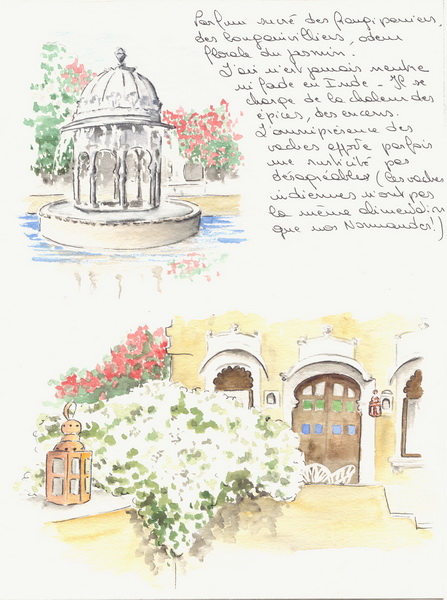 Parfum sucré des frangipaniers,
des bougainvilliers, odeur
florale du jasmin.
L'air n'est jamais neutre
ni fade en Inde - Il se
charge de la chaleur des
épices, des encens.
L'omniprésence des
vaches apporte parfois
une rusticité pas
désagréable (les vaches
indiennes n'ont pas
la même alimentation
que nos Normandes!)